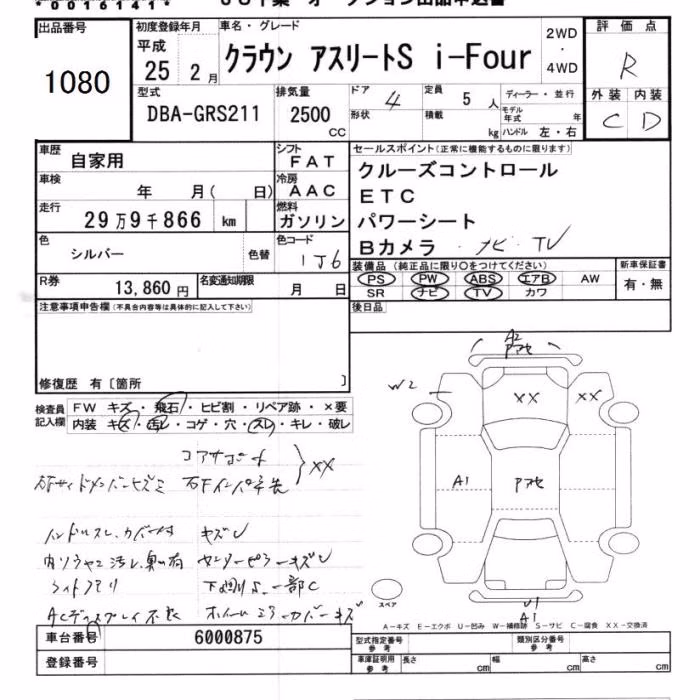 *00161411*
出品番号
1080
初度登録年月
平成
25 2月
車名・グレード
クラウン アスリートS i-Four
2WD
・
4WD
評価点
R
外装 内装
C D
型式
DBA-GRS211
排気量
2500
CC
ドア 4
形状
定員 5人
積載 kg
ディーラー・並行
モデル年式 年
ハンドル 左・右
車歴 自家用
シフト FAT
車検 年 月( 日)
冷房 AAC
走行 29万9千866 km
燃料 ガソリン
色 シルバー 色替
色コード 1J6
R券 13,860円
名変通知期限 月 日
セールスポイント(正常に機能するものに限ります)
クルーズコントロール
ETC
パワーシート
Bカメラ ・ナビ・TV
装備品(純正品に限り○をつけてください)
PS PW ABS エアB AW
SR ナビ TV カワ
新車保証書
有・無
後日品
注意事項申告欄(不具合内容等は具体的に記入して下さい)
修復歴 有〔箇所 〕
検査員記入欄
FW キズ・飛石・ヒビ割・リペア跡・×要
内装 キズ・汚レ・コゲ・穴・スレ・キレ・破レ
コアサポート
XX
ハンドルスレ、カバー付 キズU
ライトクモリ 下廻りサビ、一部C
ACディスプレイ不良 ホイールミラーカバーキズ
A2
アセ
W2
XX
XX
A1
アセ
U1
A1
スペア
A-キズ E-エクボ U-凹み W-補修跡 S-サビ C-腐食 XX-交換済
車台番号 6000875
登録番号
型式指定番号 参考
類別区分番号 参考
車庫証明用 参考
長さ cm
幅 cm
高さ cm